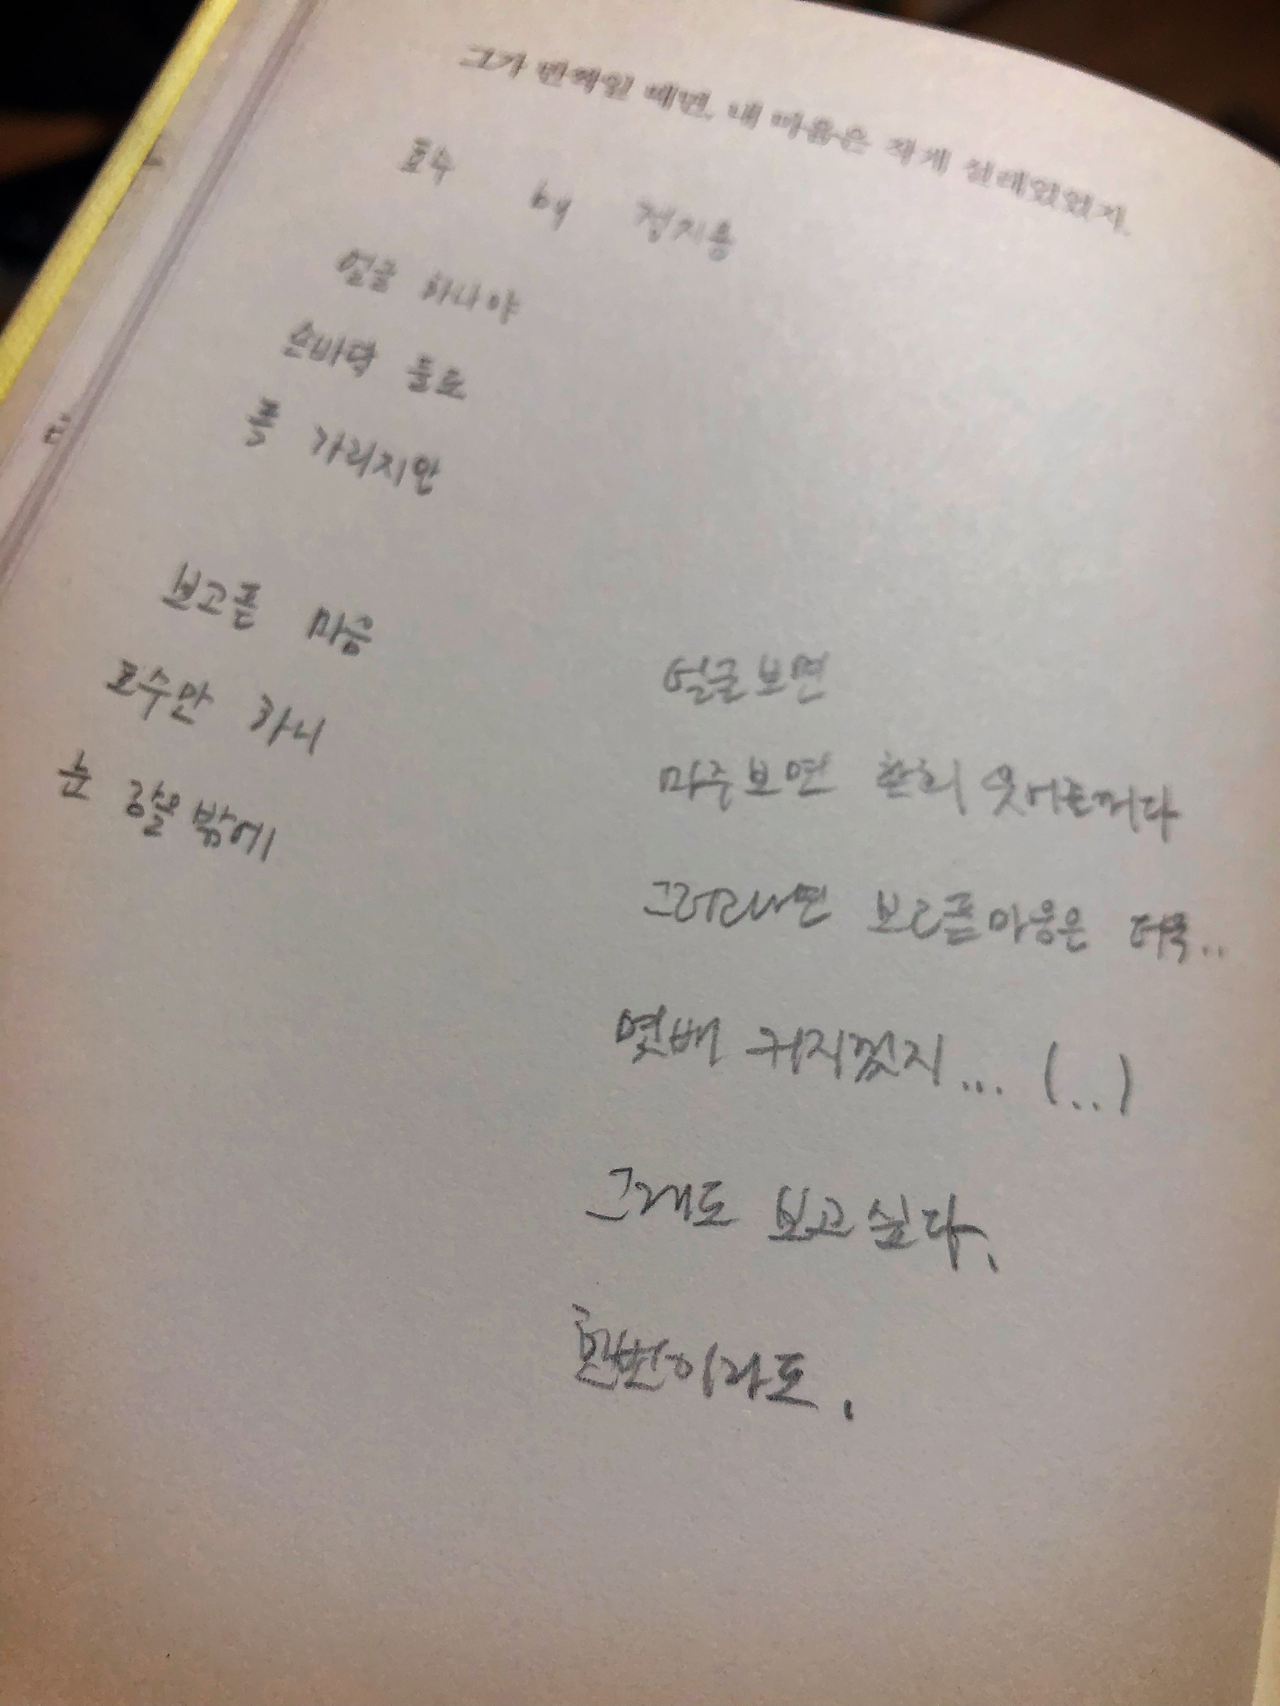 그가 벤제일 때면, 내 마음은 작게 설레였었지.
호수 by 정지용
얼굴 하나야
손바닥 둘로
폭 가리지만
보고픈 마음
호수만 하니
눈 감을밖에
얼굴보면
마주보면 환히 웃어줄꺼다
그러고나면 보고픈마음은 더욱..
몇배 커지겠지... (..)
그래도 보고싶다.
한번이라도.